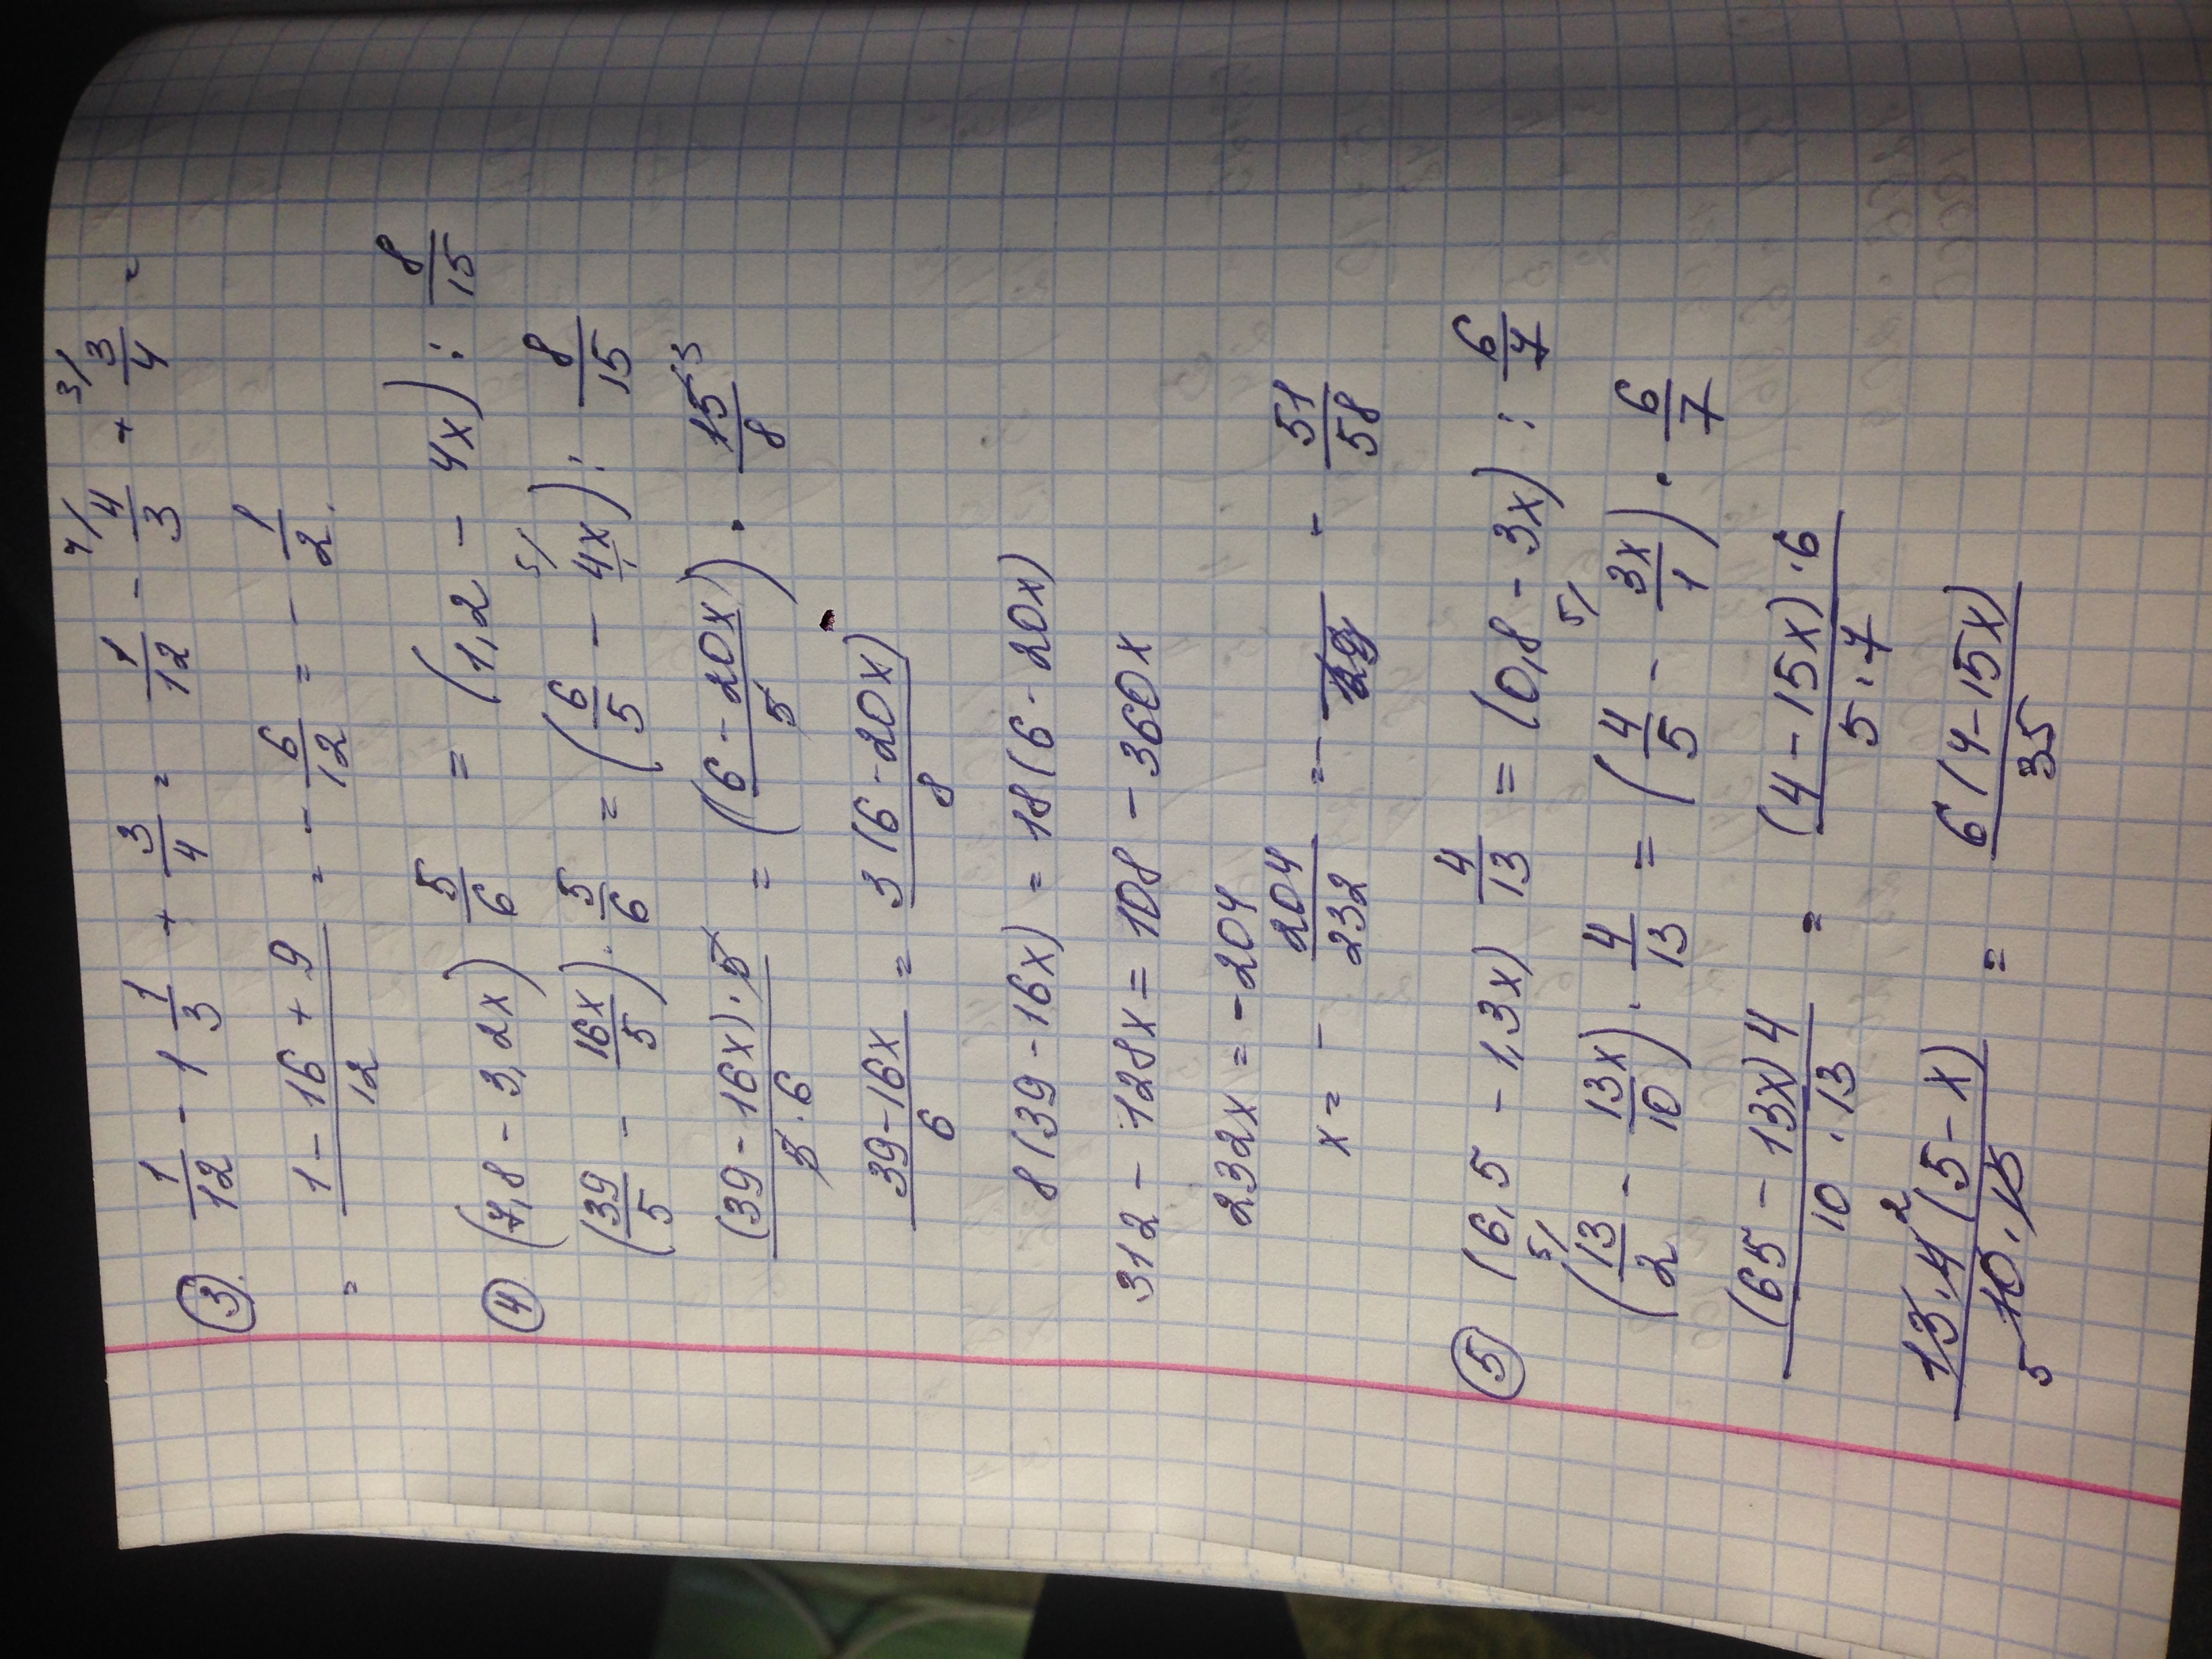 ③ 1/12 - 1 1/3 + 3/4 = 1/12 - 4/ 4/3 + 3/ 3/4 =
= (1 - 16 + 9)/12 = - 6/12 = - 1/2.
④ (7,8 - 3,2x) 5/6 = (1,2 - 4x) : 8/15
(39/5 - 16x/5) · 5/6 = (6/5 - 5/ 4x) : 8/15
(39 - 16x) · 5 / 5 · 6 = ((6 - 20x)/5) · 15 3/8
(39 - 16x)/6 = 3(6 - 20x)/8
8(39 - 16x) = 18(6 - 20x)
312 - 128x = 108 - 360x
232x = -204
x = - 204/232 = - - 51/58
⑤ (6,5 - 1,3x) 4/13 = (0,8 - 3x) : 6/7
(5/ 13/2 - 13x/10) · 4/13 = (4/5 - 5/ 3x/1) · 6/7
(65 - 13x) 4 / 10 · 13 = (4 - 15x) · 6 / 5 · 7
13 · 4 2 (5 - x) / 5 10 · 13 = 6(4 - 15x)/35